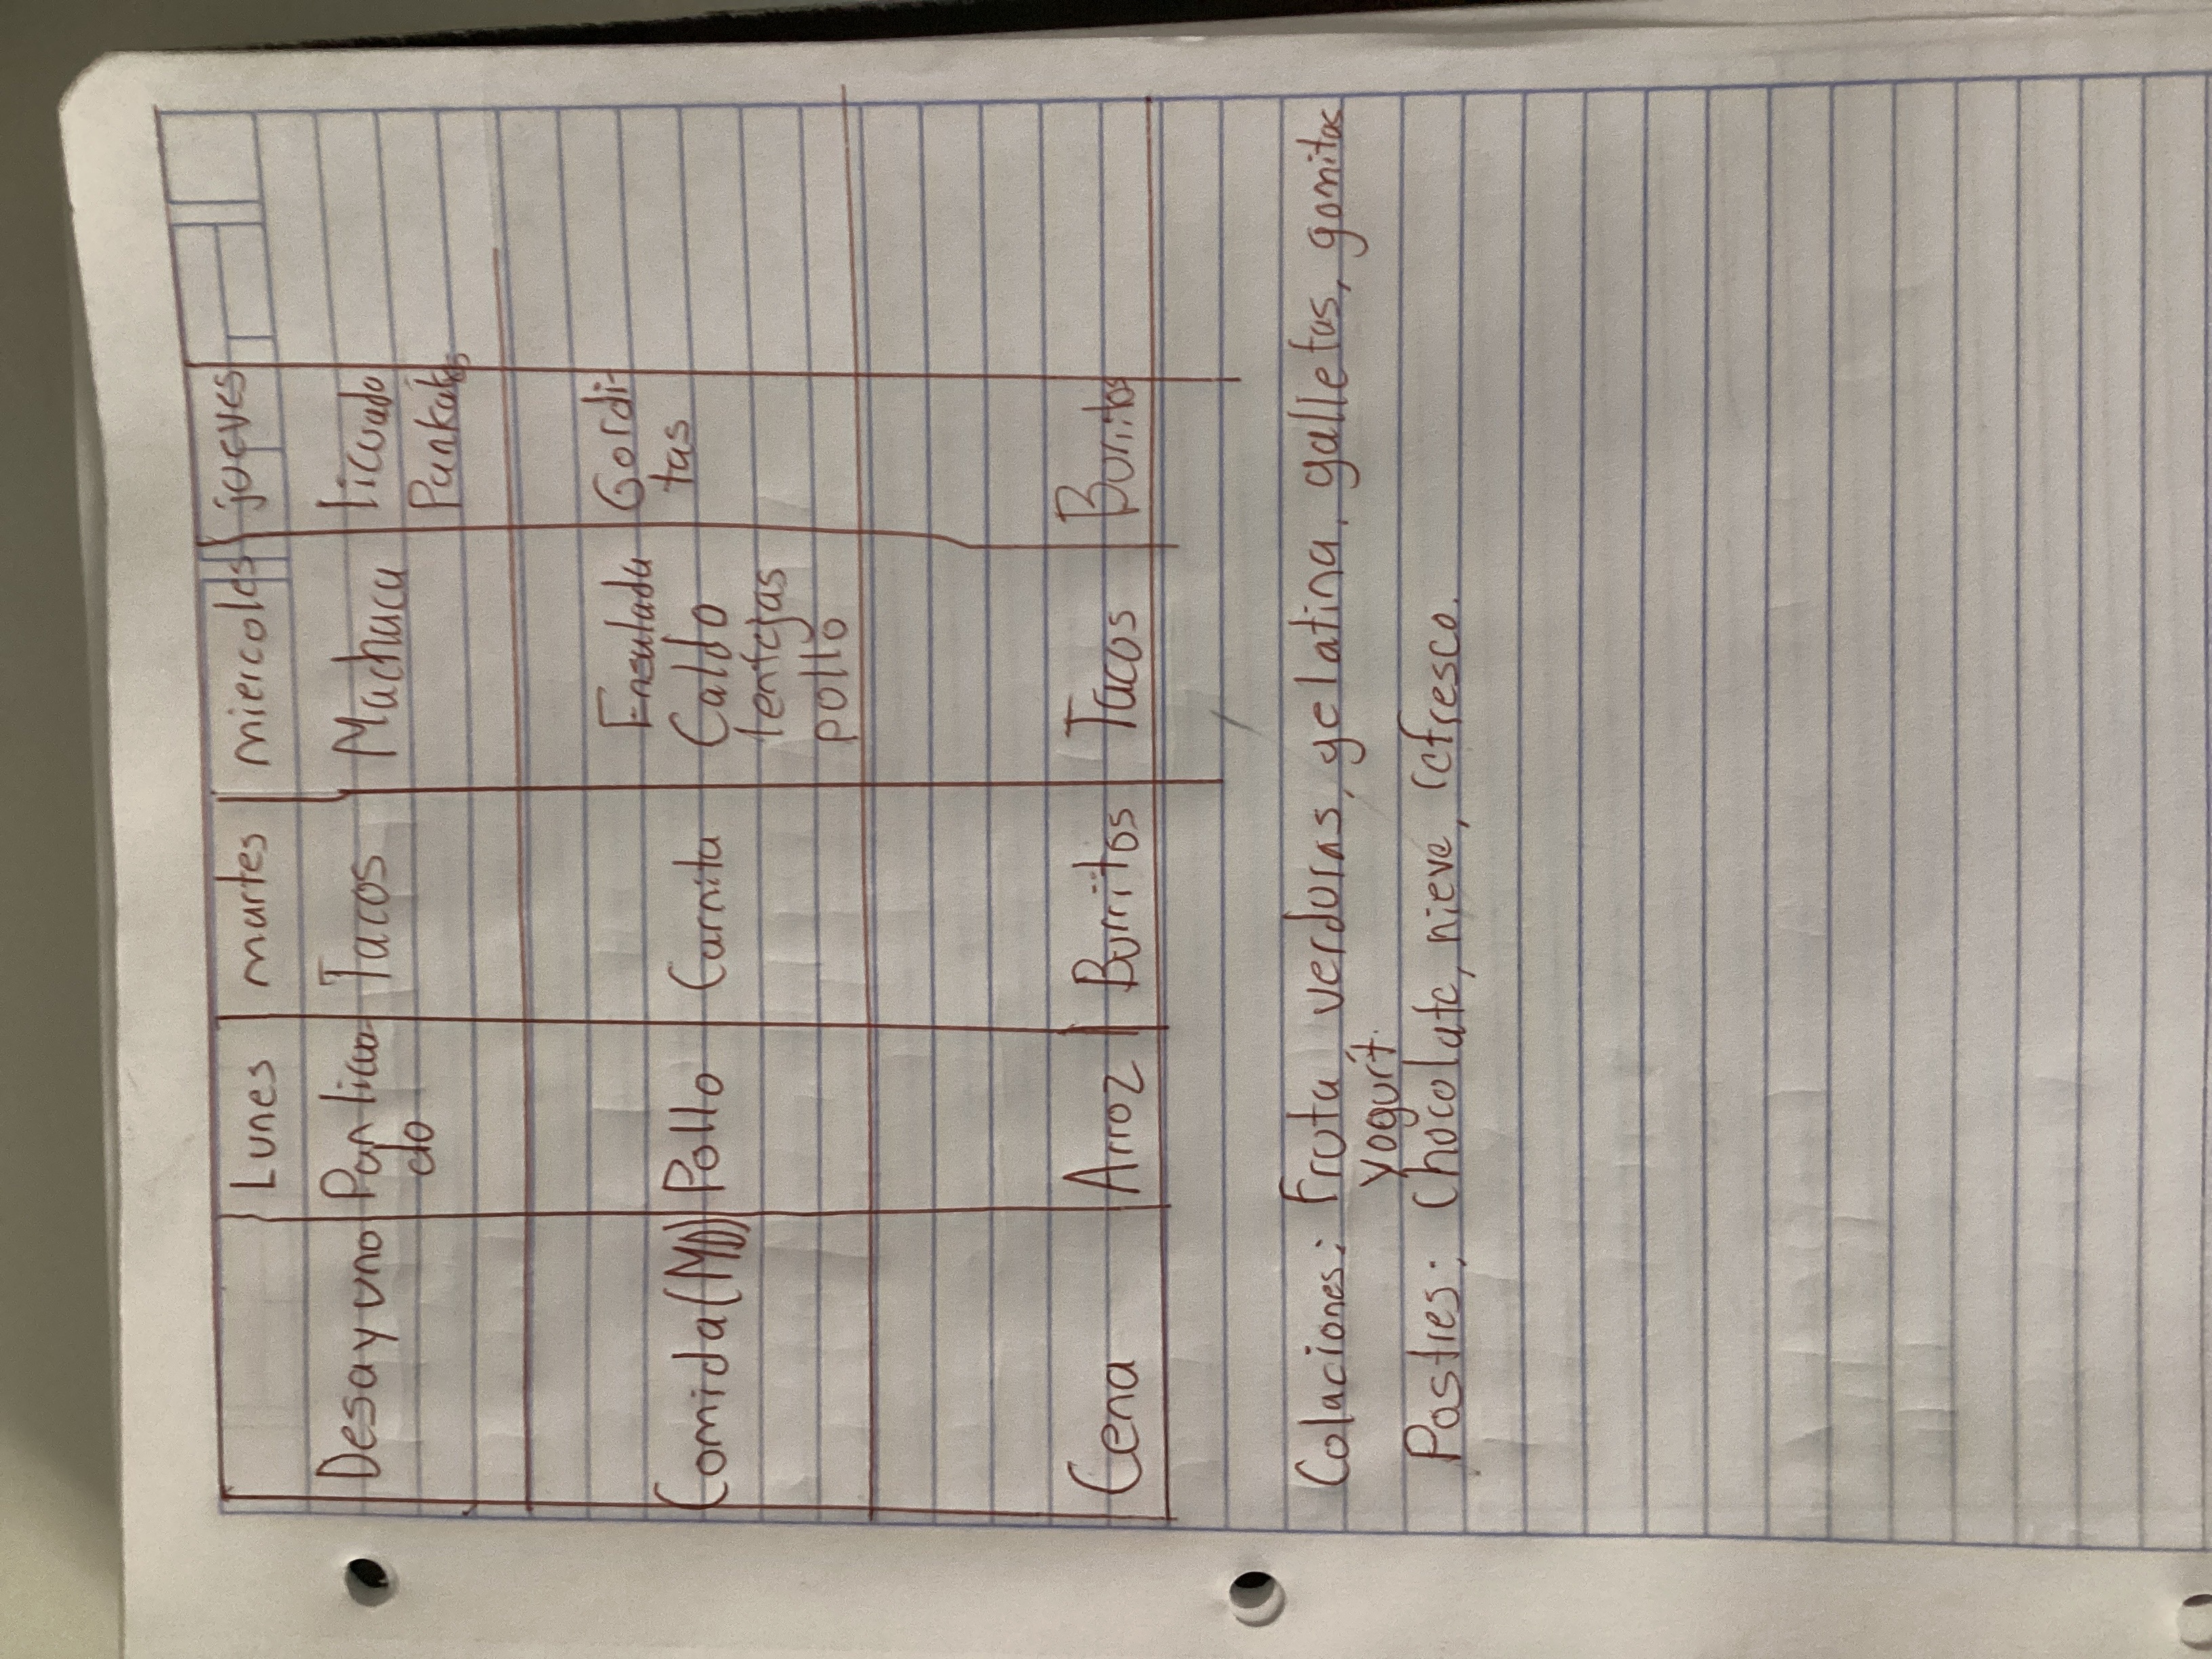 Lunes martes miercoles jueves
Desayuno Pan licua- Tacos Machaca licuado
do Pankaks
Comida Pollo Carnita Ensalada Gordi-
Caldo tas
lentejas
pollo
Cena Arroz Burritos Tacos Burritos
Colaciones: Fruta verduras, gelatina, galletas, gomitas
Yogurt.
Postres: Chocolate, nieve, refresco.